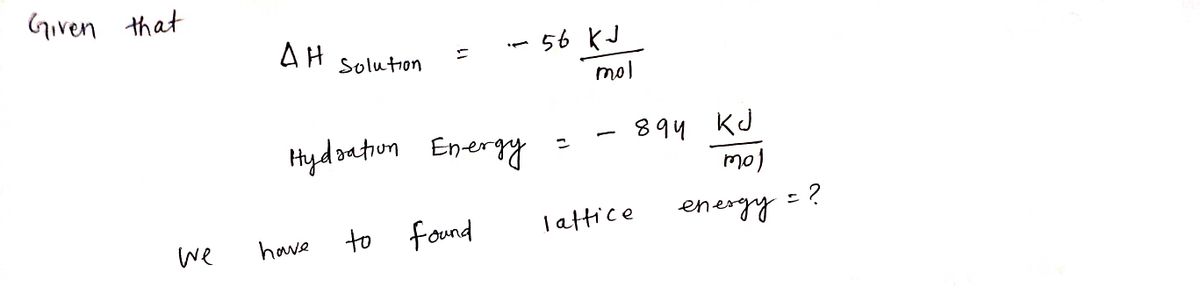 Given that
ΔH Solution = - 56 KJ/mol
Hydration Energy = - 894 KJ/mol
We have to found lattice energy = ?